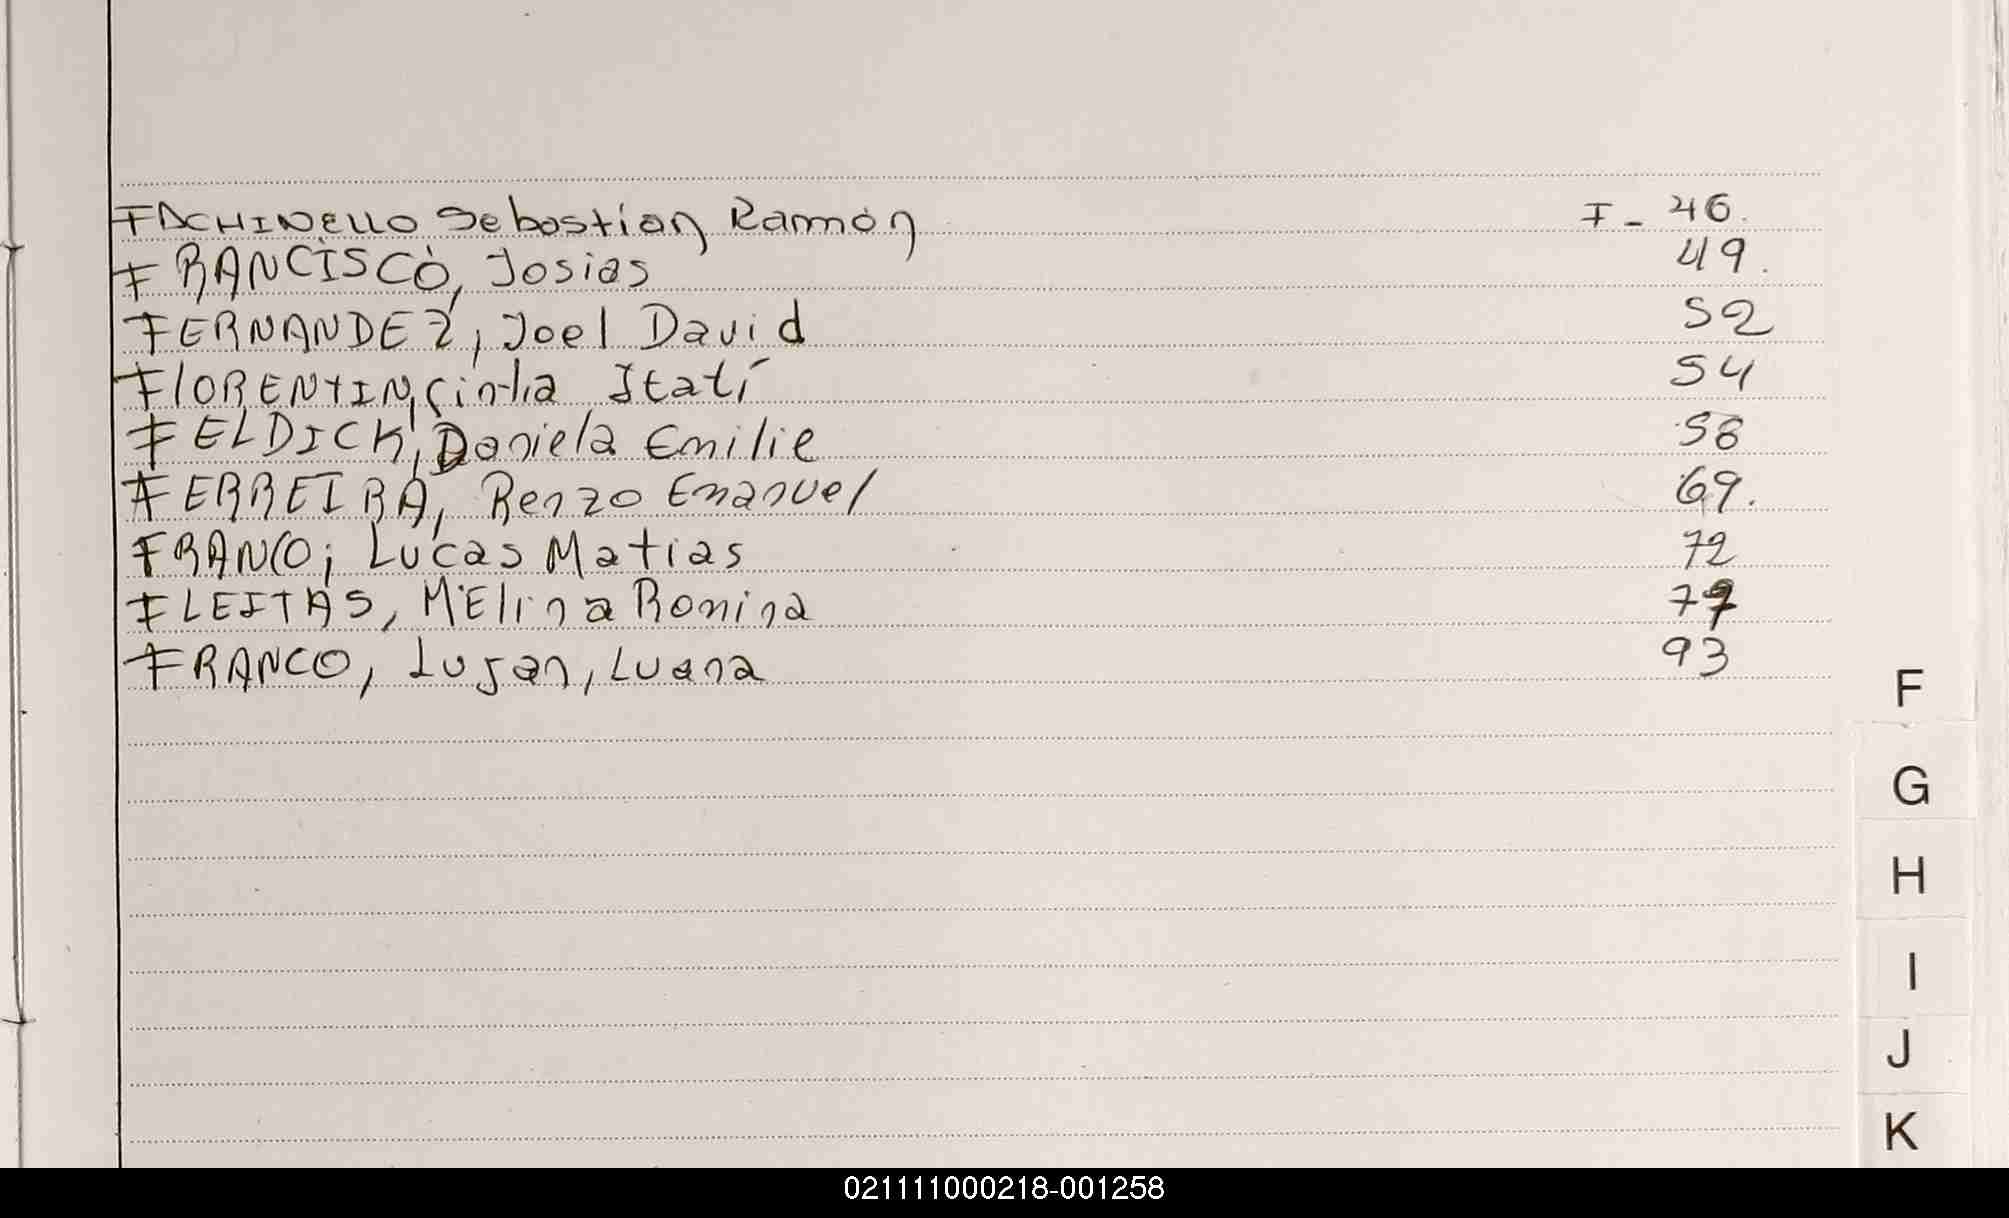 FACHINELLO Sebastian Ramón F - 46.
FRANCISCO, Josias 49.
FERNANDEZ, Joel David 52
FlORENTIN, Cintia Itatí 54
FELDICK, Daniela Emilie 58
FERREIRA, Renzo Emanuel 69.
FRANCO, Lucas Matias 72
FLEITAS, MElina Romina 77
FRANCO, Lujan, Luana 93
F
G
H
I
J
K
021111000218-001258